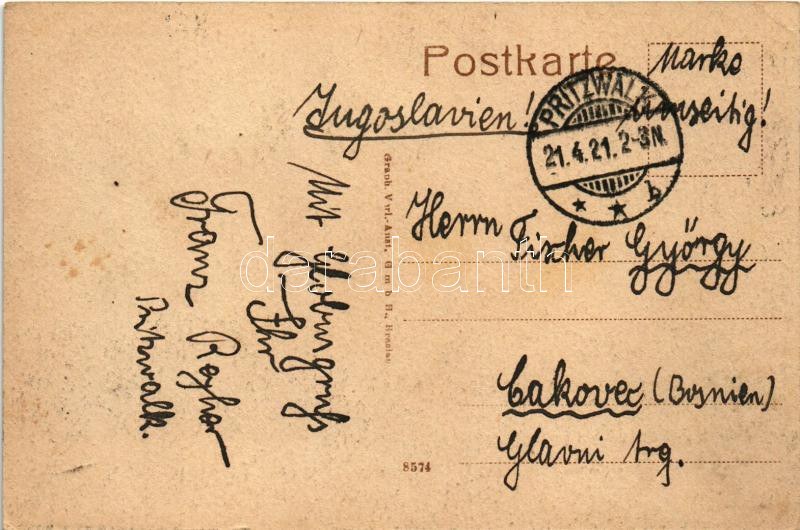 Postkarte
Marke
umseitig!
Jugoslavien!
PRITZWALK
21.4.21. 2-3N.
* * b
Herrn Fischer György
Cakovec (Bosnien)
Glavni trg.
Mit
Ihr
Franz
Pritzwalk.
Graph. Verl.-Anst. G m b H., Breslau
8574
darabanth